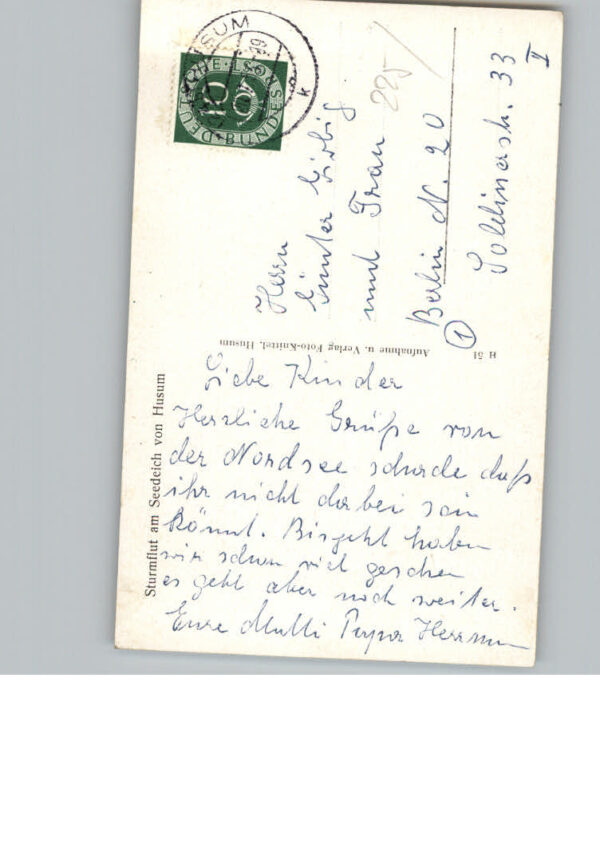 Sturmflut am Seedeich von Husum
Liebe Kinder
Herzliche Grüße von
der Nordsee schade daß
ihr nicht dabei sein
könnt. Bisjetzt haben
wir schon viel gesehen
es geht aber noch weiter.
Eure Mutti Papa Herrmann
Aufnahme u. Verlag Foto-Knittel, Husum
H 51
HUSUM
k
DEUTSCHE BUNDESPOST
10
225
Herrn
Günter
und Frau
Berlin N. 20
1
Soldinerstr. 33
II